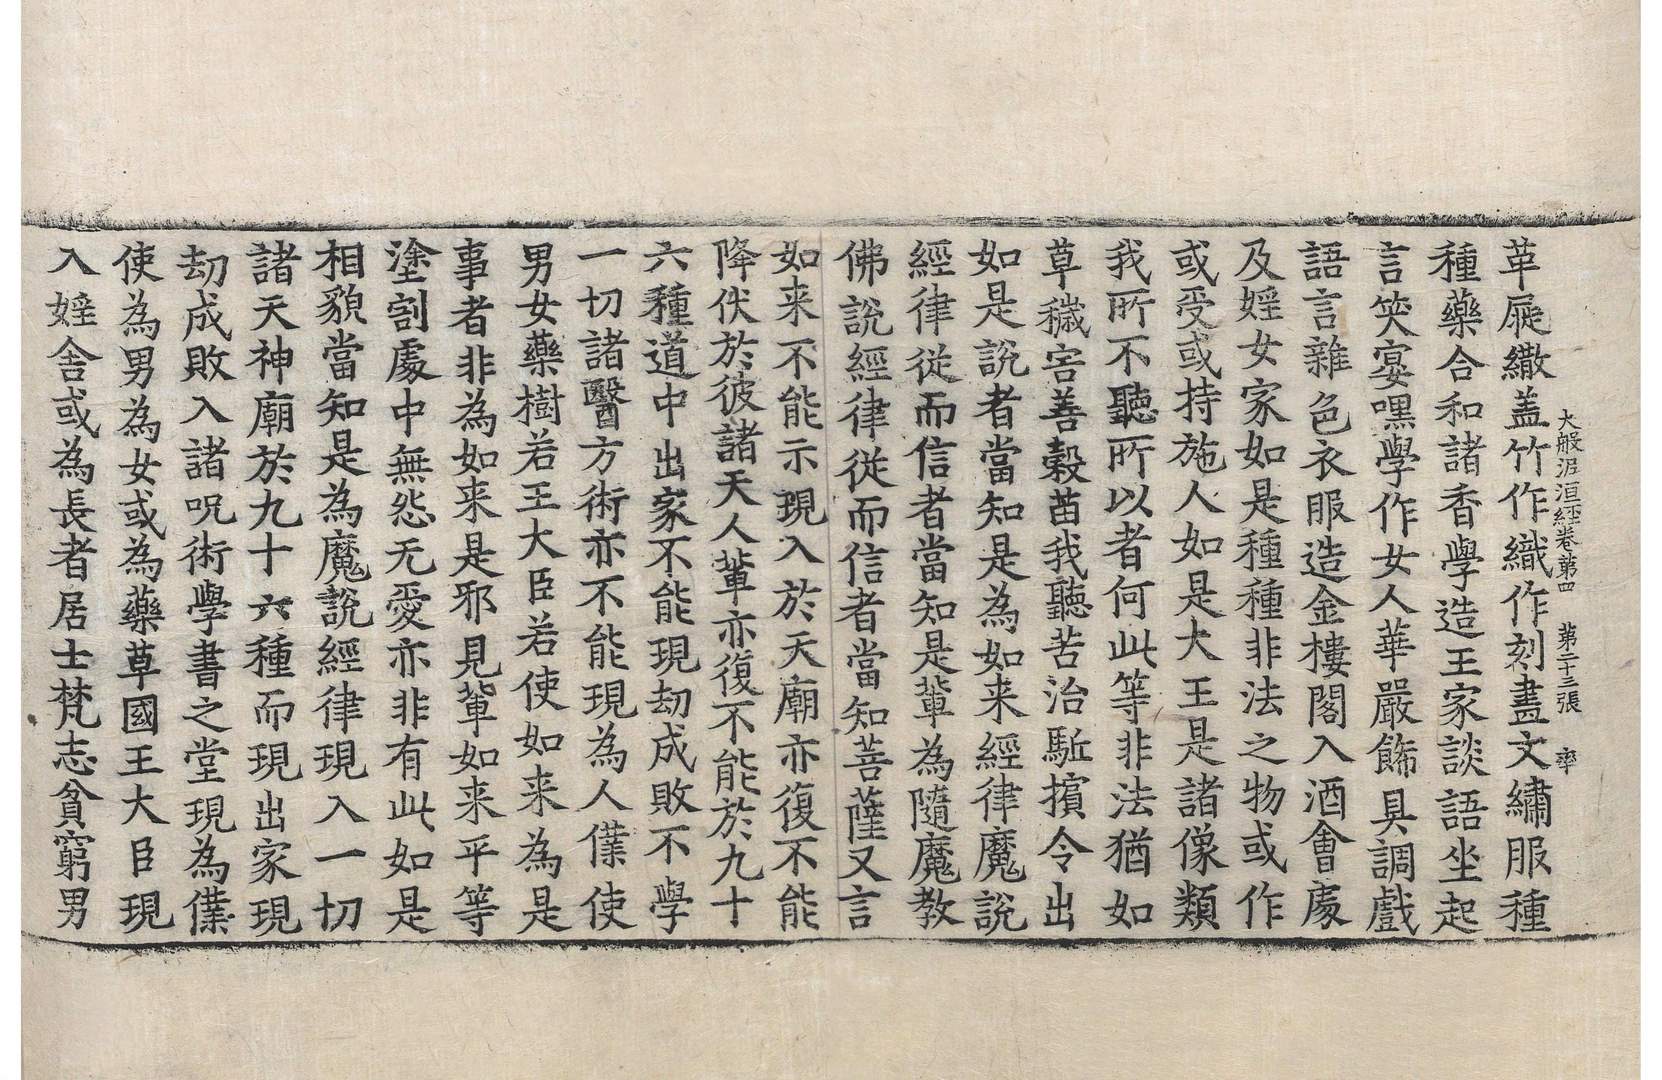 大般泥洹經卷第四　第二十三張　率
革屣繖盖竹作織作刻畫文繡服種
種藥合和諸香學造王家談語坐起
言笑宴嘿學作女人華嚴飾具調戲
語言雜色衣服造金樓閣入酒會處
及婬女家如是種種非法之物或作
或受或持施人如是大王是諸像類
我所不聽所以者何此等非法猶如
草穢害善穀苗我聽苦治駈擯令出
如是說者當知是為如来經律魔說
經律從而信者當知是軰為隨魔教
佛說經律從而信者當知菩薩又言
如来不能示現入於天廟亦復不能
降伏於彼諸天人軰亦復不能於九十
六種道中出家不能現劫成敗不學
一切諸醫方術亦不能現為人僕使
男女藥樹若王大臣若使如来為是
事者非為如来是邪見軰如来平等
塗割處中無怨无愛亦非有此如是
相貌當知是為魔說經律現入一切
諸天神廟於九十六種而現出家現
劫成敗入諸呪術學書之堂現為僕
使為男為女或為藥草國王大臣現
入婬舍或為長者居士梵志貧窮男